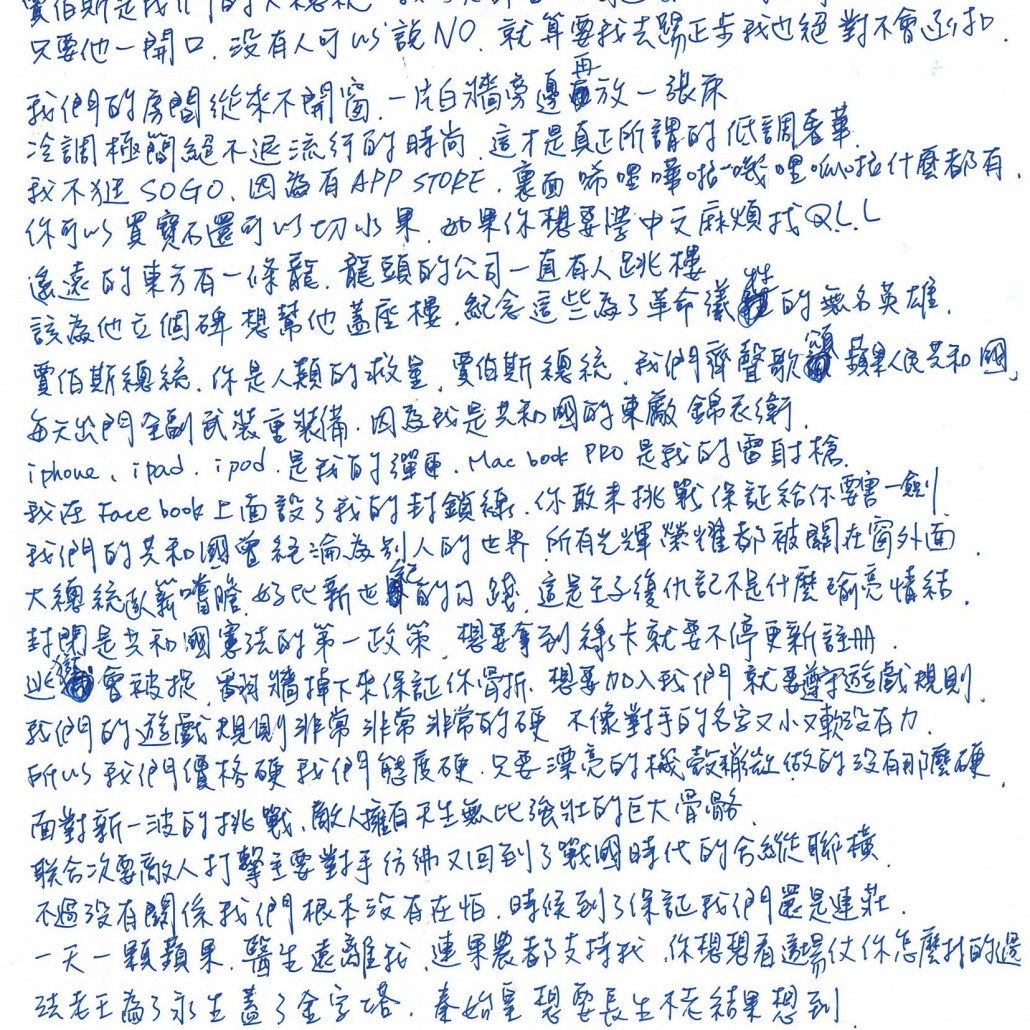 賈伯斯是我們的大總統
只要他一開口.沒有人可以說NO.就算要我去踢正步我也絕對不會囉扣.
我們的房間從來不開窗.一片白牆旁邊再放一張床
冷調極簡絕不退流行的時尚.這才是真正所謂的低調奢華.
我不逛SOGO.因為有APP STORE.裏面唏哩嘩啦嘰哩呱啦什麼都有.
你可以買寶石還可以切水果.如果你想要學中文麻煩找Q.L.L
遙遠的東方有一條龍.龍頭的公司一直有人跳樓
該為他立個碑想幫他蓋座樓.紀念這些為了革命犧牲的無名英雄.
賈伯斯總統.你是人類的救星.賈伯斯總統.我們齊聲歌頌蘋果人民共和國.
每天出門全副武裝重裝備.因為我是共和國的東廠錦衣衛.
iphone、ipad.ipod.是我的彈匣.Mac book PRO是我的雷射槍.
我在Facebook上面設了我的封鎖線.你敢來挑戰保証給你要害一劍.
我們的共和國曾經淪為別人的世界.所有光輝榮耀都被關在窗外面.
大總統臥薪嚐膽.好比新世紀的勾踐.這是王子復仇記不是什麼瑜亮情結.
封閉是共和國憲法的第一政策.想要拿到綠卡就要不停更新註冊.
逃獄會被捉.翻牆掉下來保証你骨折.想要加入我們就要遵守遊戲規則.
我們的遊戲規則非常非常非常的硬 不像對手的名字又小又軟沒有力.
所以我們價格硬我們態度硬.只要漂亮的機殼稍微做的沒有那麼硬.
面對新一波的挑戰.敵人擁有天生無比強壯的巨大骨骼.
聯合次要敵人打擊主要對手彷彿又回到了戰國時代的合縱聯橫.
不過沒有關係我們根本沒有在怕.時候到了保証我們還是連莊.
一天一顆蘋果.醫生遠離我.連果農都支持我.你想想看這場仗你怎麼打的過
法老王為了永生蓋了金字塔.秦始皇想要長生不老結果想到